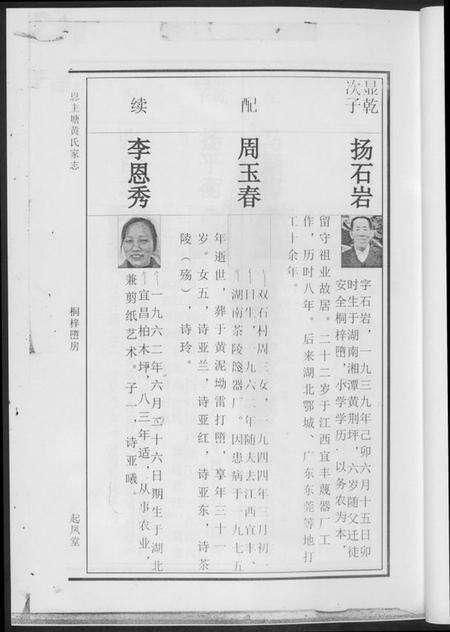 显乾
次子
扬石岩
字石岩，一九三九年己卯六月十五日卯
时生于湖南湘潭黄荆坪，六岁随父迁徒
安全桐梓堕，小学学历，以务农为本，
留守祖业故居。二十二岁于江西宜丰蔑器厂工
作，历时八年。后来湖北鄂城、广东东莞等地打
工十余年。
配
周玉春
双石村周三女，一九四四年三月初
日生，一九六二年随夫去江西宜丰、
湖南茶陵篾器厂。因患病于一九七五
年逝世，葬于黄泥坳雷打堕，享年三十一
岁。女五，诗亚兰，诗亚红，诗亚东，诗茶
陵（殇），诗玲。
续
李恩秀
一九六二年六月 十六日期生于湖北
宜昌柏木坪，八三年适，从事农业，
兼剪纸艺术。子一，诗亚曦。
思主塘黄氏家志
桐梓堕房
起凤堂